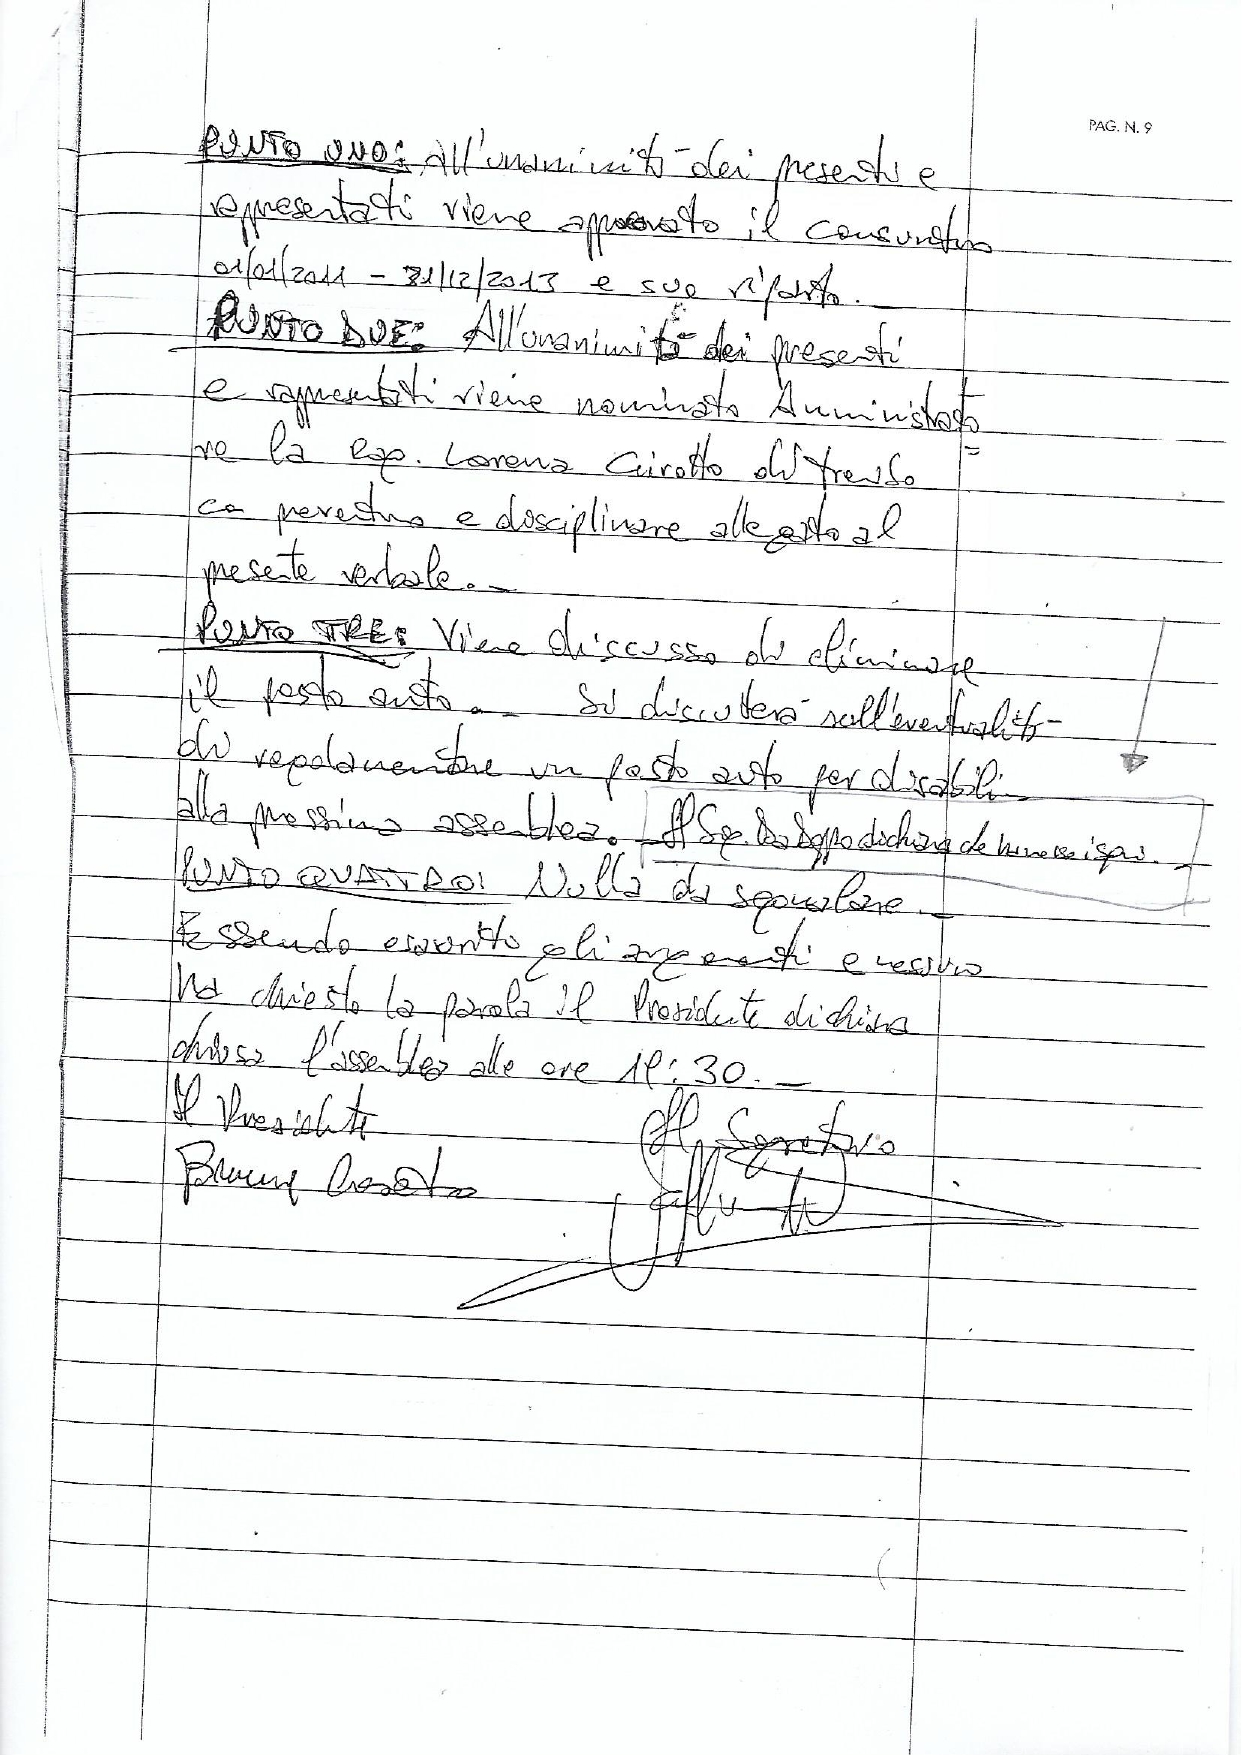 PAG. N. 9
PUNTO UNO: All'unanimità dei presenti e
rappresentati viene approvato il consuntivo
01/01/2011 - 31/12/2013 e suo riparto.
PUNTO DUE: All'unanimità dei presenti
e rappresentati viene nominato Amministrato=
re la Rag. Lorena Girotto di Treviso
preventivo e disciplinare allegato al
presente verbale.
PUNTO TRE: Viene discusso di eliminare
il posto auto. Si discuterà sull'eventualità
di regolamentare un posto auto per disabili
alla prossima assemblea. Il Sig. dichiara
PUNTO QUATTRO: Nulla da segnalare.
Essendo esauriti gli argomenti e nessuno
ha chiesto la parola il Presidente dichiara
chiusa l'assemblea alle ore 30.
Il Presidente
Il Segretario